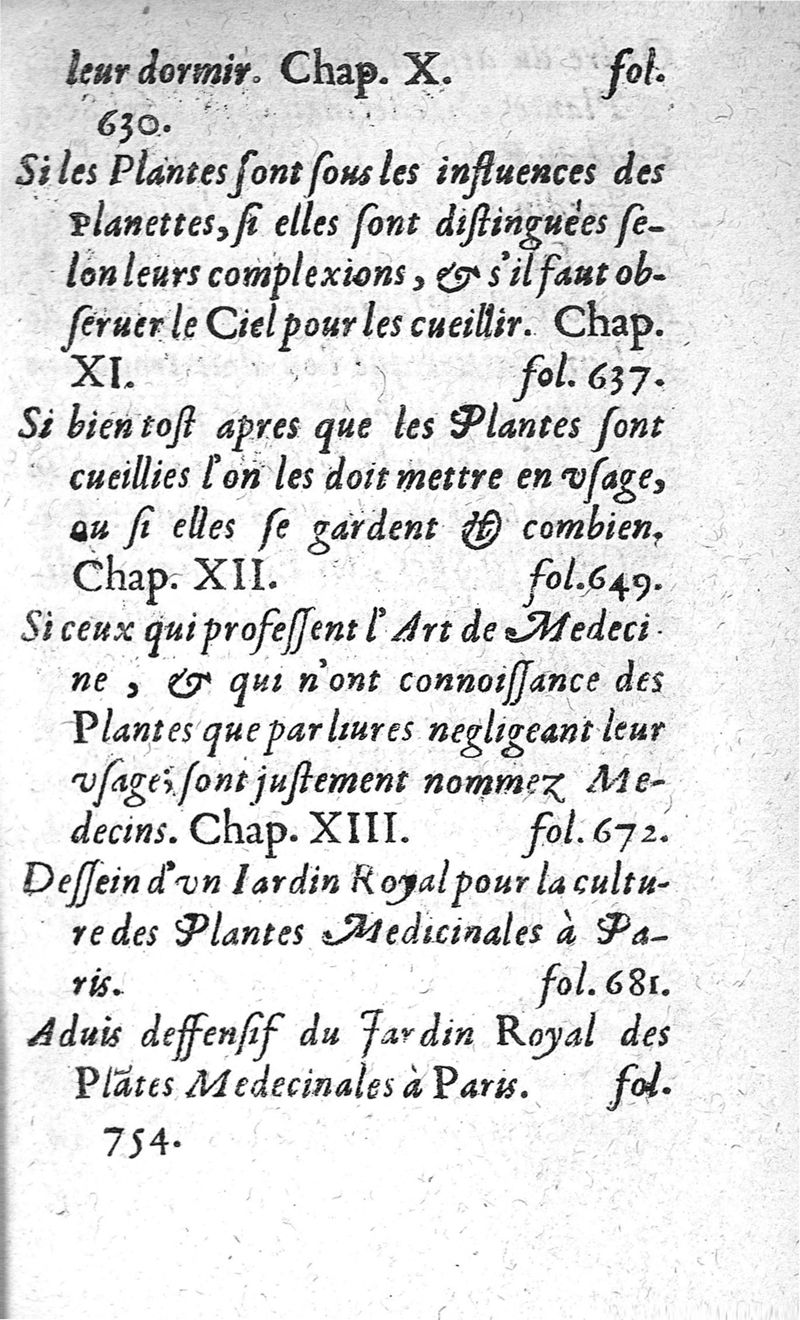 leur dormir. Chap. X. fol.
630.
Si les Plantes ſont ſous les influences des
Planettes, ſi elles ſont diſtinguées ſe-
lon leurs complexions, & s'il faut ob-
ſeruer le Ciel pour les cueillir. Chap.
XI. fol. 637.
Si bien toſt apres que les Plantes ſont
cueillies l'on les doit mettre en vſage,
ou ſi elles ſe gardent & combien.
Chap. XII. fol. 649.
Si ceux qui profeſſent l'Art de Medeci-
ne, & qui n'ont connoiſſance des
Plantes que par liures negligeant leur
vſage, ſont juſtement nommez Me-
decins. Chap. XIII. fol. 672.
Deſſein d'vn Iardin Royal pour la cultu-
re des Plantes Medicinales à Pa-
ris. fol. 681.
Aduis deffenſif du Jardin Royal des
Plãtes Medecinales à Paris. fol.
754.